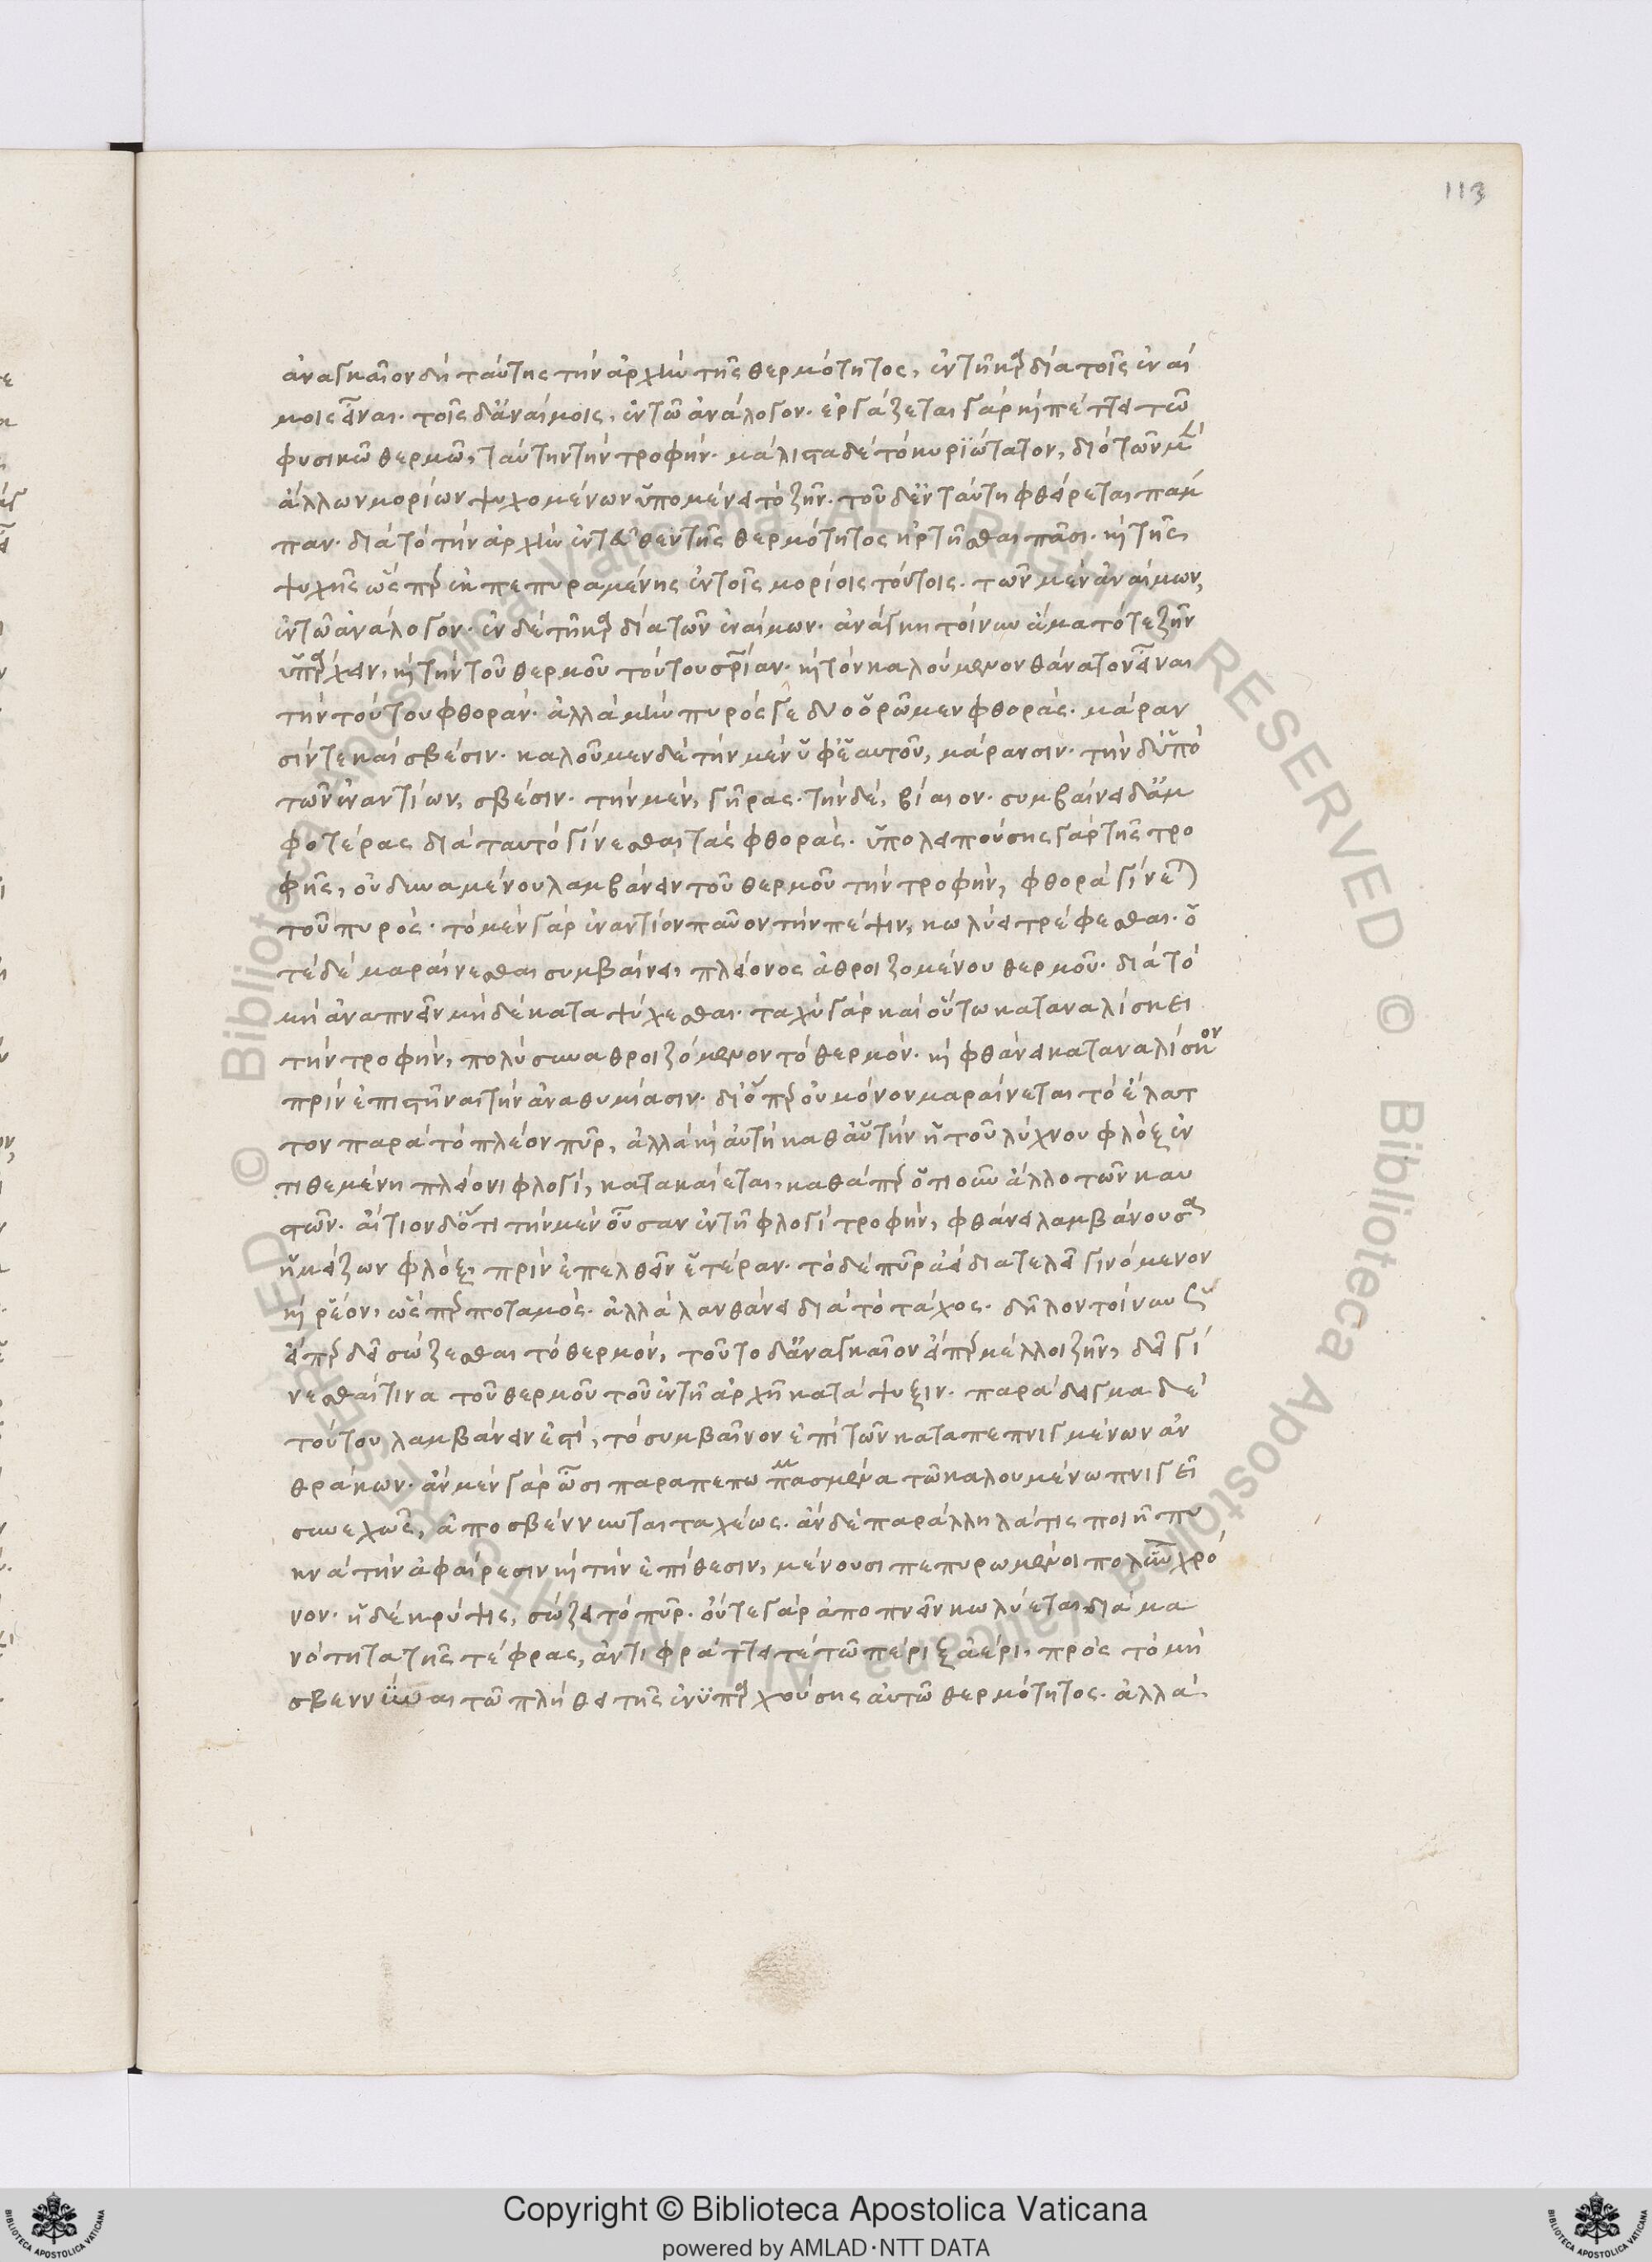 113
ἀναγκαῖον δὴ ταύτης τὴν ἀρχὴν τῆς θερμότητος, ἐν τῇ καρδία τοῖς ἐναί
μοις εἶναι. τοῖς δ' ἀναίμοις, ἐν τῶ ἀνάλογον. ἐργάζεται γὰρ καὶ πέττει τῶ
φυσικῶ θερμῶ, ταύτην τὴν τροφὴν. μάλιστα δὲ τὸ κυριώτατον, διὸ τῶν μὲν
ἄλλων μορίων ψυχομένων ὑπομένει τὸ ζῆν. τοῦ δ' ἐν ταύτη φθείρεται πάμ
παν. διὰ τὸ τὴν ἀρχὴν ἐντεῦθεν τῆς θερμότητος ἠρτῆσθαι πᾶσι. καὶ τῆς
ψυχῆς ὥσπερ ἐκπεπυραμένης ἐν τοῖς μορίοις τούτοις. τῶν μὲν ἀναίμων,
ἐν τῶ ἀνάλογον. ἐν δὲ τῇ καρδία τῶν ἐναίμων. ἀνάγκη τοίνυν ἅμα τό τε ζῆν
ὑπάρχειν, καὶ τὴν τοῦ θερμοῦ τούτου σωτηρίαν. καὶ τὸν καλούμενον θάνατον εἶναι
τὴν τούτου φθοράν. ἀλλὰ μὴν πυρός γε δύο ὁρῶμεν φθοράς. μάραν
σίν τε καὶ σβέσιν. καλοῦμεν δὲ τὴν μὲν ὑφ' ἑαυτοῦ, μάρανσιν. τὴν δ' ὑπὸ
τῶν ἐναντίων, σβέσιν. τὴν μὲν, γῆρας. τὴν δὲ, βίαιον. συμβαίνει δ' ἀμ
φοτέρας διὰ ταυτὸ γίνεσθαι τὰς φθοράς. ὑπολειπούσης γὰρ τῆς τρο
φῆς, οὐ δυναμένου λαμβάνειν τοῦ θερμοῦ τὴν τροφὴν, φθορὰ γίνεται
τοῦ πυρός. τὸ μὲν γὰρ ἐναντίον παῦον τὴν πέψιν, κωλύει τρέφεσθαι. ὁ
τὲ δὲ μαραίνεσθαι συμβαίνει, πλείονος ἀθροιζομένου θερμοῦ. διὰ τὸ
μὴ ἀναπνεῖν μὴ δὲ καταψύχεσθαι. ταχὺ γὰρ καὶ οὕτω καταναλίσκει
τὴν τροφὴν, πολὺ συναθροιζόμενον τὸ θερμόν. καὶ φθάνει καταναλίσκον
πρὶν ἐπιστῆναι τὴν ἀναθυμίασιν. διόπερ οὐ μόνον μαραίνεται τὸ ἔλατ
τον παρὰ τὸ πλέον πῦρ, ἀλλὰ καὶ αὐτὴ καθ' αὑτὴν ἡ τοῦ λύχνου φλὸξ ἐν
τιθεμένη πλείονι φλογὶ, κατακαίεται, καθάπερ ὁτιοῦν ἄλλο τῶν καυ
στῶν. αἴτιον δ' ὅτι τὴν μὲν οὖσαν ἐν τῇ φλογὶ τροφὴν, φθάνει λαμβάνουσα
ἡ μείζων φλὸξ, πρὶν ἐπελθεῖν ἑτέραν. τὸ δὲ πῦρ ἀεὶ διατελεῖ γινόμενον
καὶ ῥέον, ὥσπερ ποταμός. ἀλλὰ λανθάνει διὰ τὸ τάχος. δῆλον τοίνυν ὡς
εἴπερ δεῖ σώζεσθαι τὸ θερμὸν, τοῦτο δ' ἀναγκαῖον εἴπερ μέλλοι ζῆν, δεῖ γί
νεσθαί τινα τοῦ θερμοῦ τοῦ ἐν τῇ ἀρχῇ κατάψυξιν. παράδειγμα δὲ
τούτου λαμβάνειν ἐστὶ, τὸ συμβαῖνον ἐπὶ τῶν καταπεπνιγμένων ἀν
θράκων. ἂν μὲν γὰρ ὦσι παραπεπωμασμένα τῶ καλουμένω πνιγεῖ
συνεχῶς, ἀποσβέννυνται ταχέως. ἂν δὲ παράλληλά τις ποιῇ πυ
κνὰ τὴν ἀφαίρεσιν καὶ τὴν ἐπίθεσιν, μένουσι πεπυρωμένοι πολὺν χρό
νον. ἡ δὲ κρύψις, σώζει τὸ πῦρ. οὔτε γὰρ ἀποπνεῖν κωλύεται διὰ μα
νότητα τῆς τέφρας, ἀντιφράττει τὲ τῶ πέριξ ἀέρι, πρὸς τὸ μὴ
σβεννύναι τῶ πλήθει τῆς ἐνυπαρχούσης αὐτῶ θερμότητος. ἀλλὰ
© Biblioteca Apostolica Vaticana ALL RIGHTS RESERVED © Biblioteca Apostolica Vaticana ALL RIGHTS RESERVED
Copyright © Biblioteca Apostolica Vaticana
powered by AMLAD·NTT DATA
BIBLIOTECA APOSTOLICA VATICANA
BIBLIOTECA APOSTOLICA VATICANA